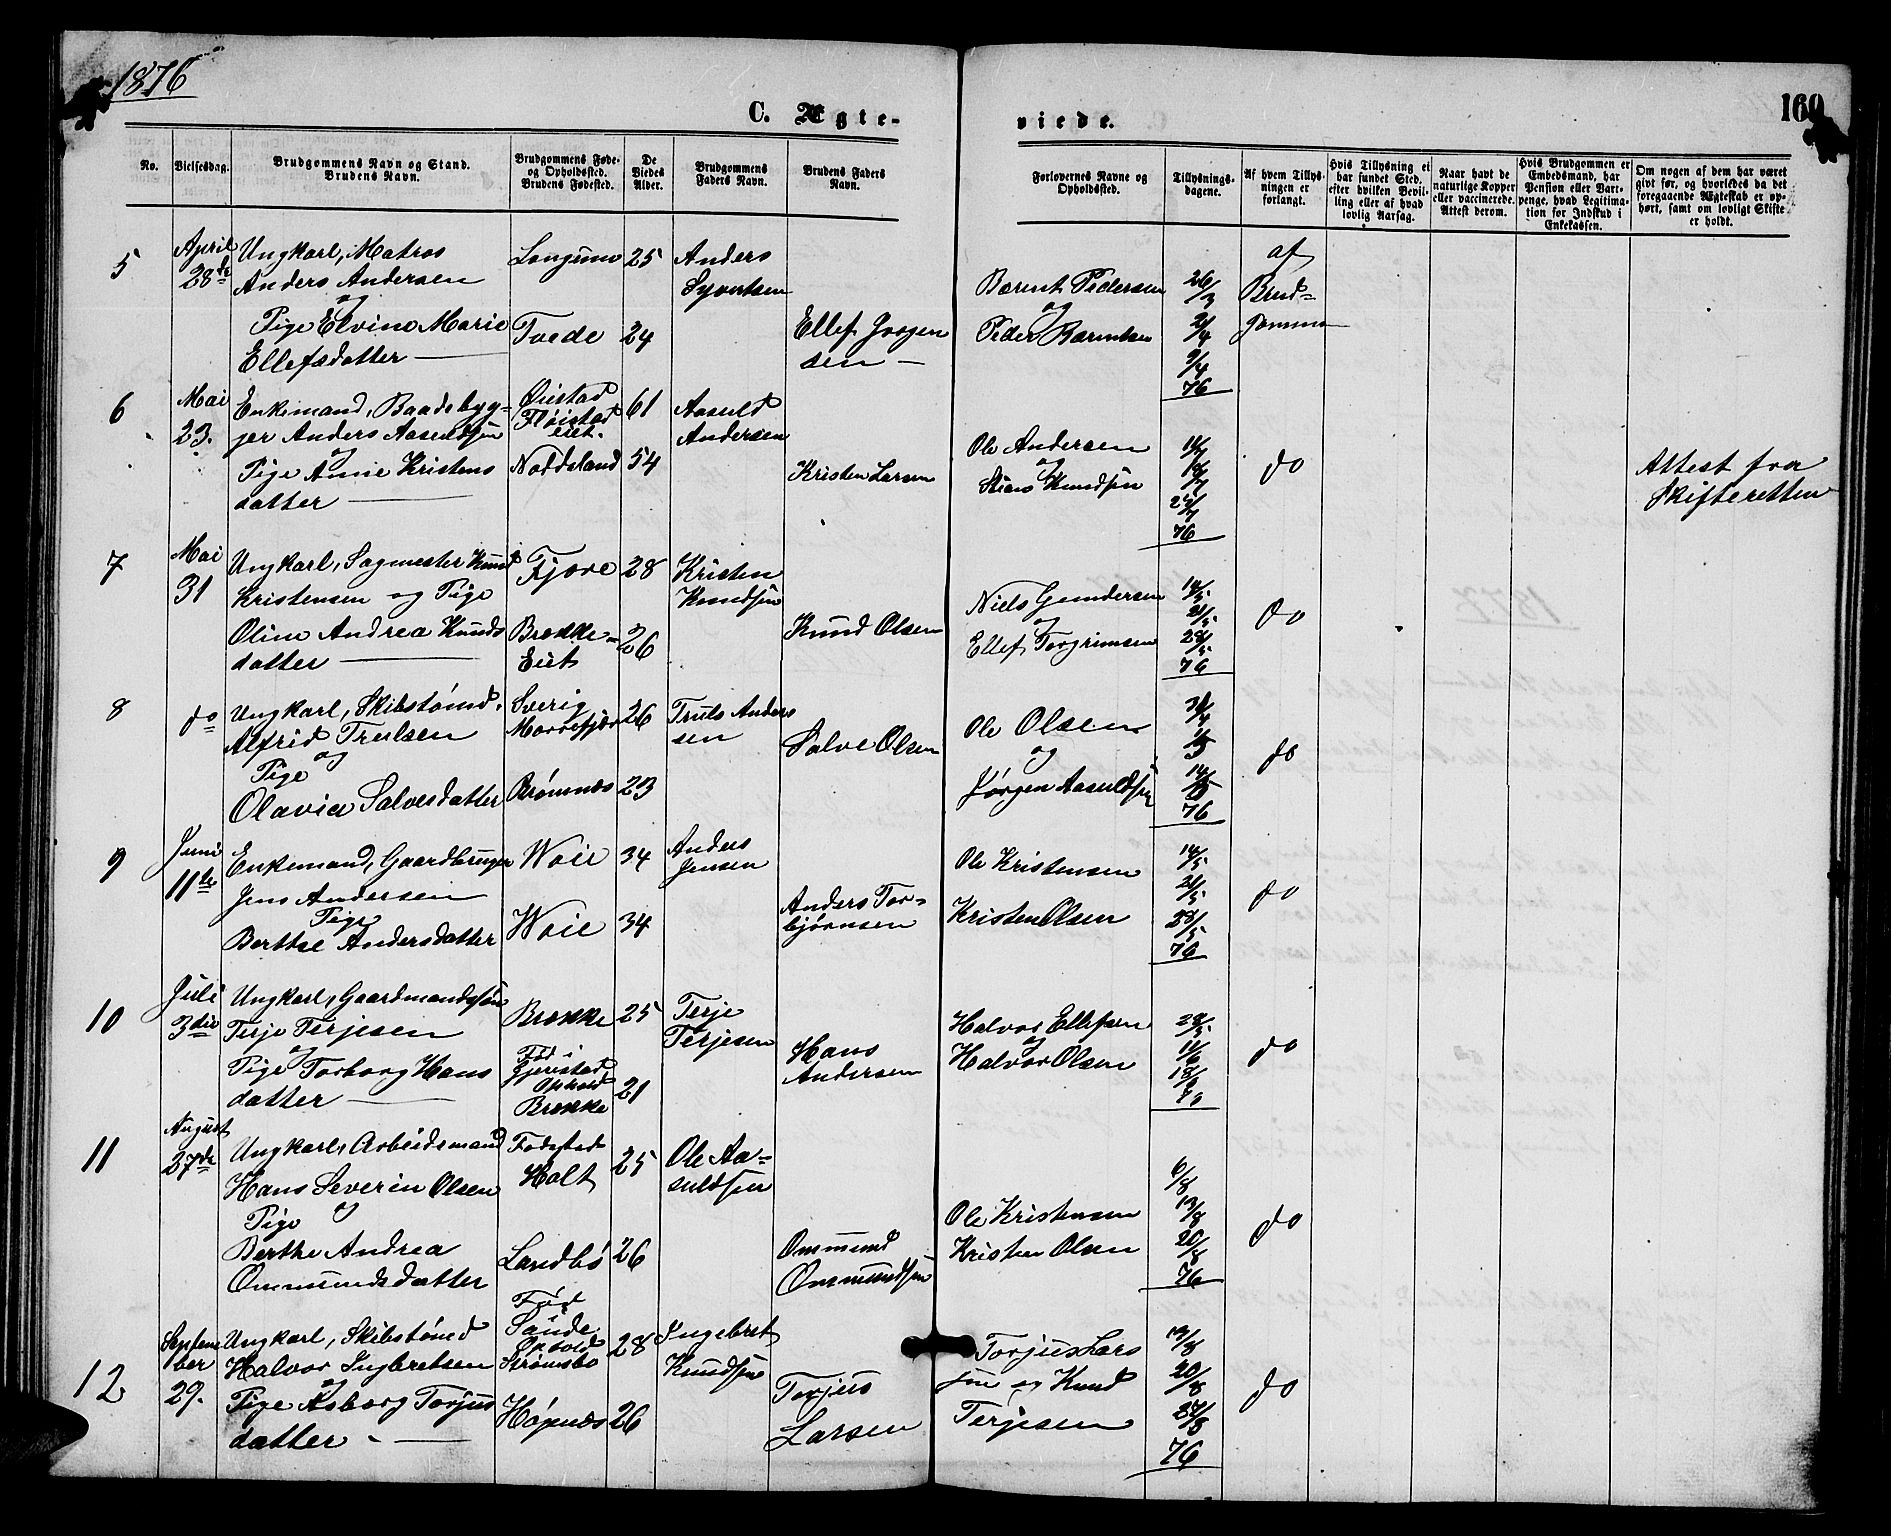 1876
160
C. Ægte-
viede.
No.
Vielsesdag.
Brudgommens Navn og Stand.
Brudens Navn.
Brudgommens Føde-
og Opholdssted.
Brudens Fødested.
De
Viedes
Alder.
Brudgommens
Faders Navn.
Brudens Faders
Navn.
Forlovernes Navne og
Opholdssted.
Tillysnings-
dagene.
Af hvem Tillys-
ningen er
forlangt.
Hvis Tillysning et
har fundet Sted,
efter hvilken Bevil-
ling eller af hvad
lovlig Aarsag.
Naar havt de
naturlige Kopper
eller vaccinerede.
Attest derom.
Hvis Brudgommen er
Embedsmand, har
Pension eller Vart-
penge, hvad Legitima-
tion for Indskud i
Enkekassen.
Om nogen af dem har været
givt før, og hvorledes da det
foregaaende Ægteskab er op-
hørt, samt om lovligt Skifte
er holdt.
5
April
28de
Ungkarl, Matros
Anders Andersen
og
Pige Elvine Marie
Ellefsdatter
Longum
Tvede
25
24
Anders
Syvertsen
Ellef Jorgen
sen
Barent Pedersen
og
Peder Barentsen
26/3
2/4
9/4
76
af
Brud-
gommen
6
Mai
23.
Enkemand, Baadsbyg-
ger Anders Aasuldsen
og
Pige Anne Kristens
datter
Øiestad
Fløistad
eiet.
Noddeland
61
54
Aasuld
Andersen
Kristen Larsen
Ole Andersen
og
Knudsen
76
do
Attest fra
Skifteretten
7
Mai
31
Ungkarl, Sagmester Knud
Kristensen og Pige
Oline Andrea Knuds
datter
Fjære
Brekke-
Eiet
28
26
Kristen
Knudsen
Knud Olsen
Niels Gundersen
og
Ellef Torgrimsen
14/5
21/5
28/5
76
do
8
do
Ungkarl, Skibstømd.
Alfrid Trulsen
og
Pige
Olavia Salvesdatter
Sverig
Morrefjær
Brømnæs
26
23
Truls Anders
sen
Salve Olsen
Ole Olsen
og
Jørgen Aasuldsen
76
do
9
Juni
11te
Enkemand, Gaardbruger
Jens Andersen
Pige
Berthe Andersdatter
Woie
Woie
34
34
Anders
Jensen
Anders Tor-
bjørnsen
Ole Kristensen
Kristen Olsen
14/5
21/5
28/5
76
do
10
Juli
3die
Ungkarl, Gaardmandssøn
Terje Terjesen
og
Pige Torborg Hans
datter
Brekke
Fød i
Gjerestad
Ophold
Brekke
25
21
Terje
Terjesen
Hans
Andersen
Halvor Ellefsen
og
Halvor Olsen
28/5
11/6
18/6
76
do
11
August
27de
Ungkarl, Arbeidsmand
Hans Severin Olsen
og
Pige
Berthe Andrea
Ommundsdatter
Fødested
Holt
Landbø
25
26
Ole Aa-
suldsen
Ommund
Ommundsen
Ole Kristensen
Kristen Olsen
6/8
13/8
20/8
76
do
12
Septem
ber
29.
Ungkarl, Skibstømd
Halvor Ingbretsen
og
Pige Asborg Torjus
datter
Fød
Søndel
Ophold
Strømsbo
Høgnæs
28
26
Ingebret
Knudsen
Torjus
Larsen
Torjus Lars
sen og Knud
Terjesen
13/8
20/8
27/8
76
do